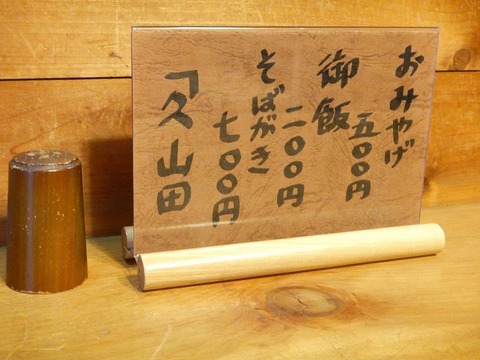 おみやげ
五〇〇円
御飯
二〇〇円
そばがき
七〇〇円
久山田